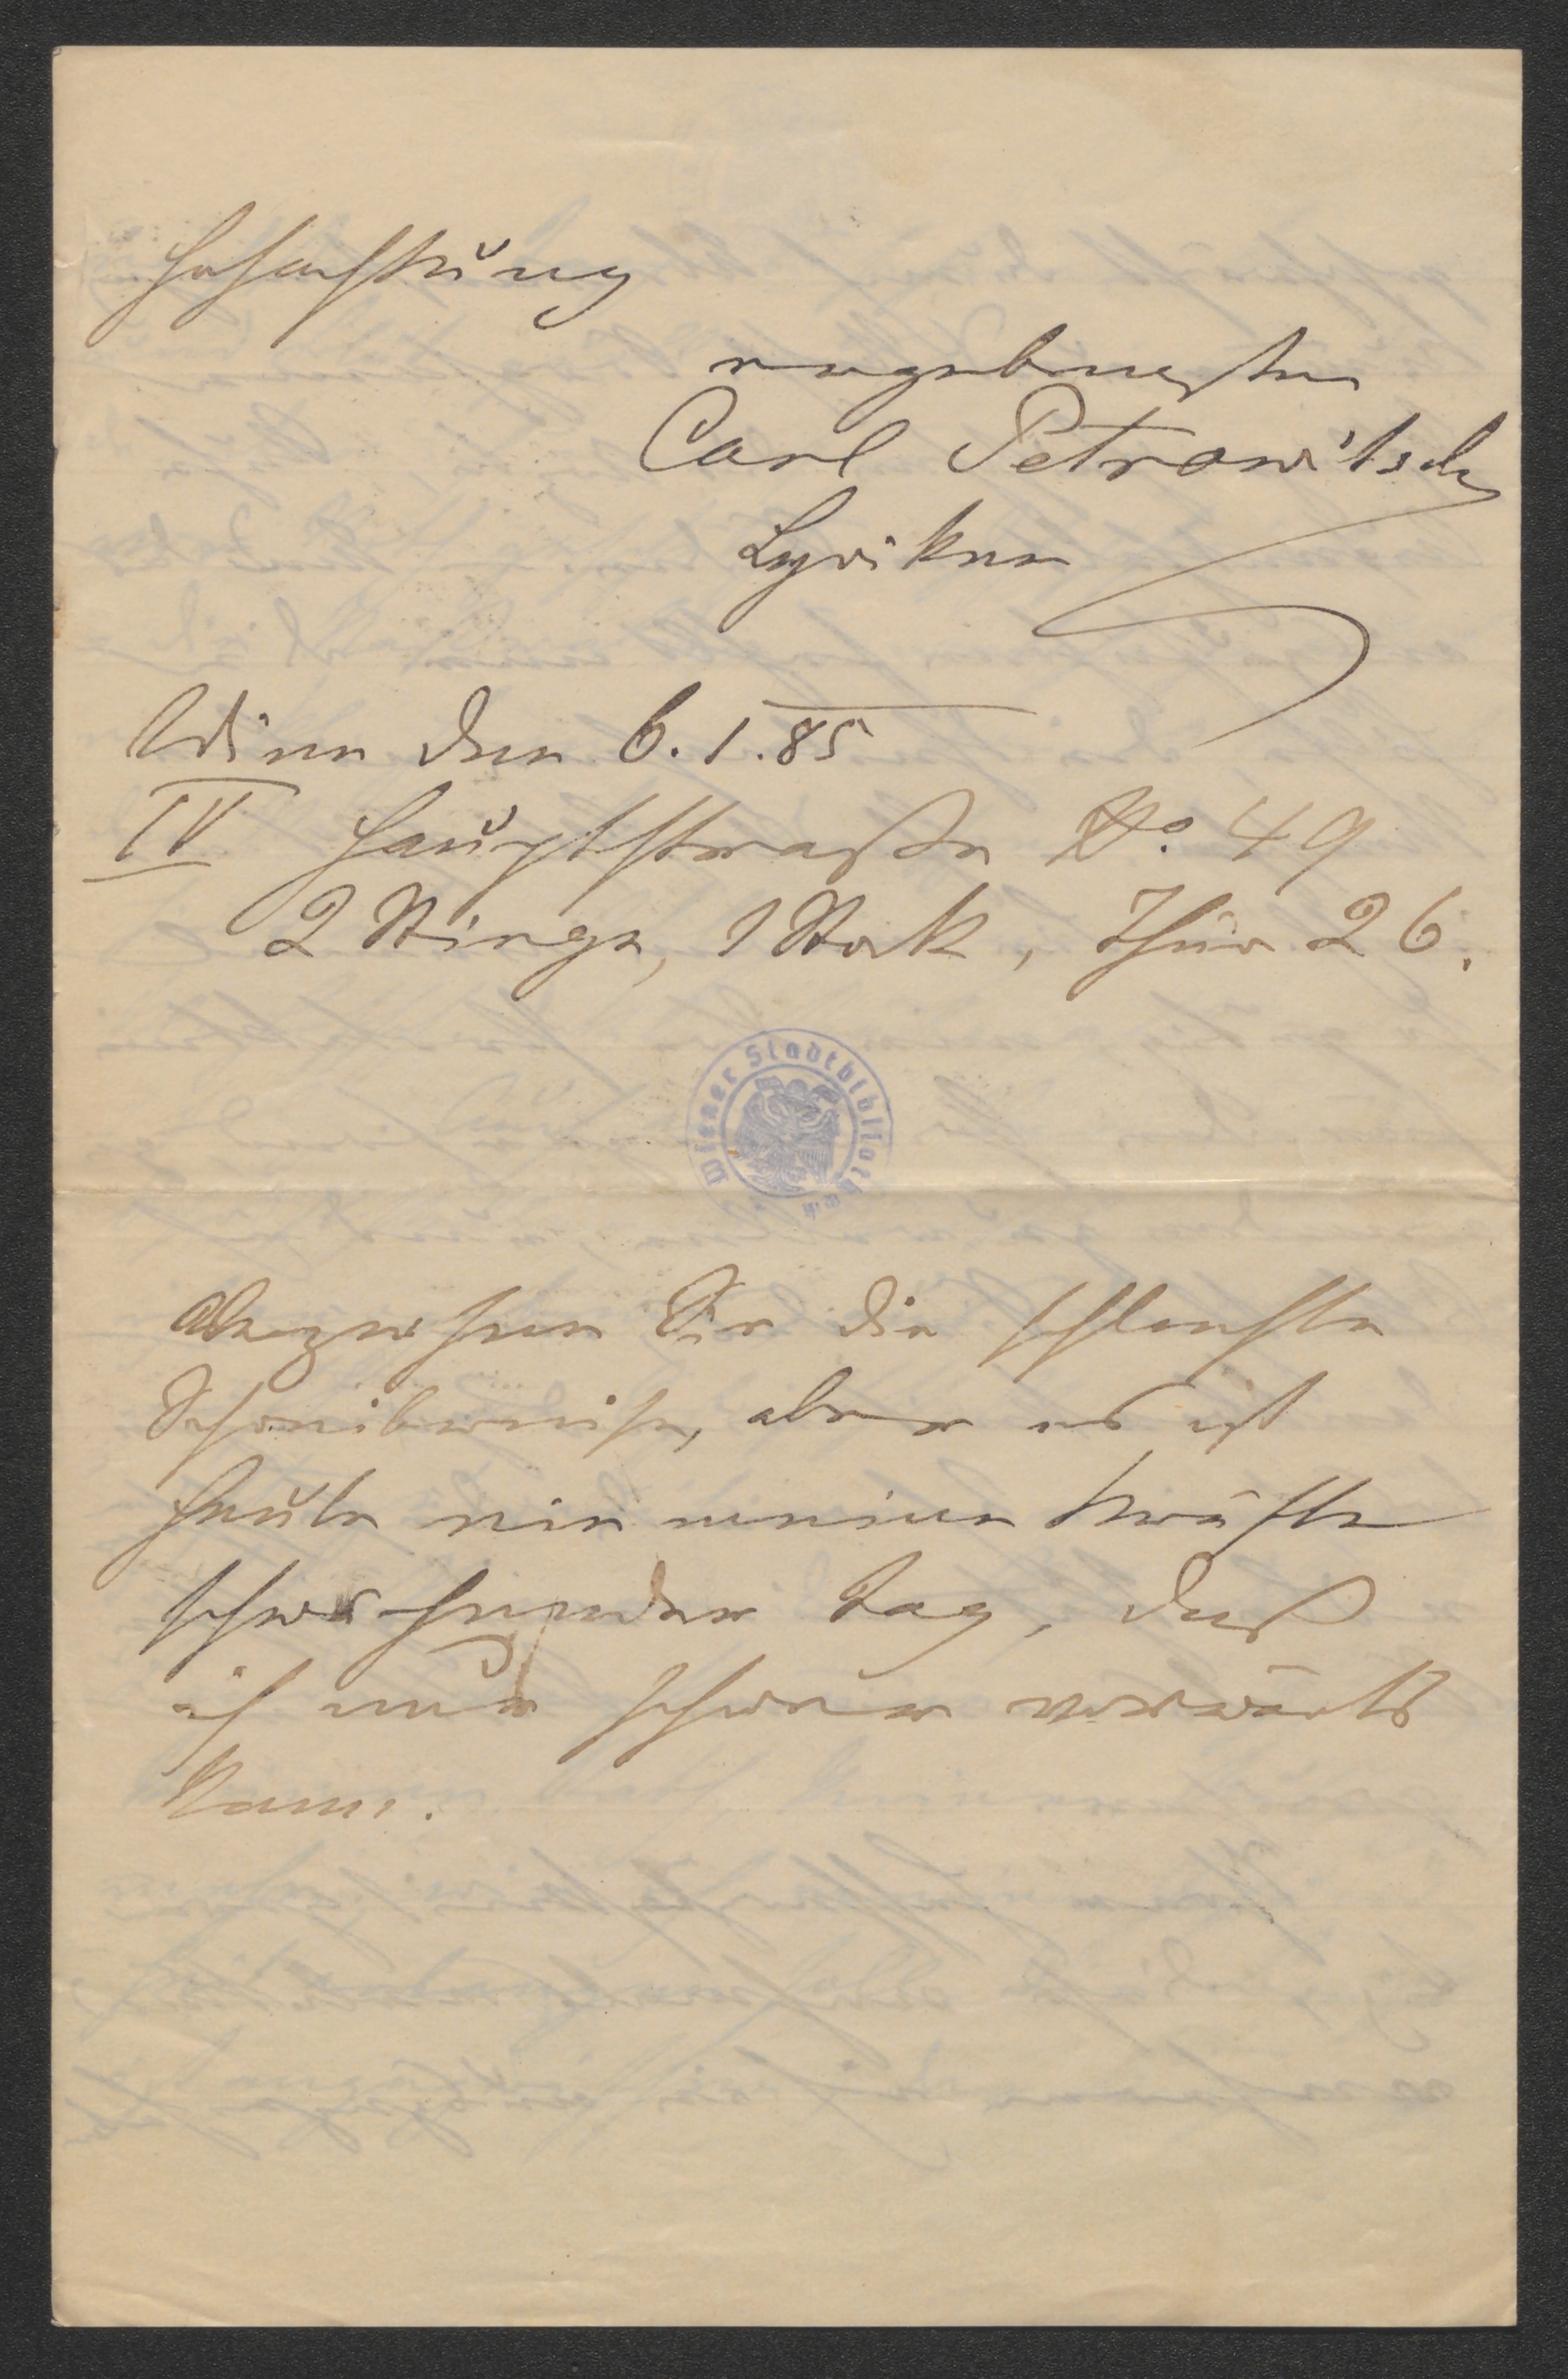 Hochachtung
ergebenster
Carl Petrowitsch
Lyriker
Wien den 6. 1. 85
IV Hauptstraße No. 49
2 Stiege, 1 Stock, Thür 26.
Wiener Stadtbibliothek
Verzeihen Sie die schlechte
Schreibweise, aber es ist
heute ein meine Kräfte
schwächender Tag, daß
ich nur schwer vorwärts
kann.